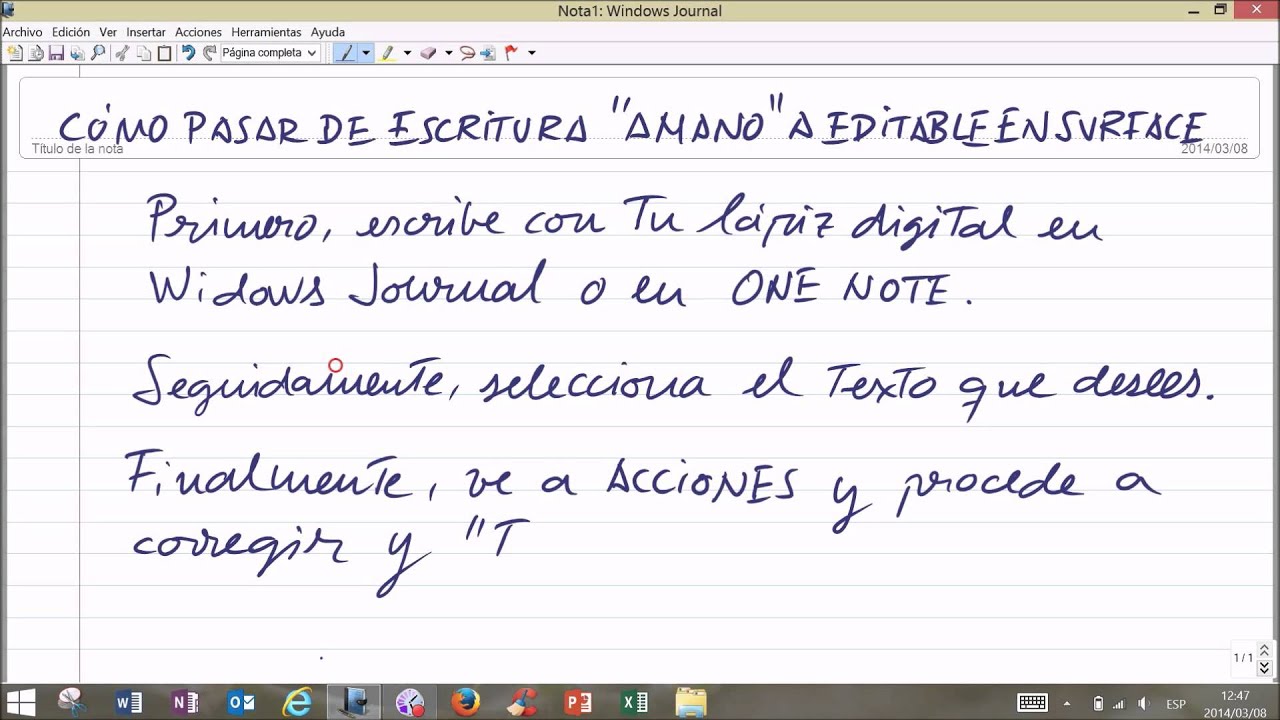 Nota1: Windows Journal
Archivo Edición Ver Insertar Acciones Herramientas Ayuda
Página completa
CÓMO PASAR DE ESCRITURA "A MANO" A EDITABLE EN SURFACE
Título de la nota 2014/03/08
Primero, escribe con Tu lápiz digital en
Widows Journal o en ONE NOTE.
Seguidamente, selecciona el Texto que desees.
Finalmente, ve a ACCIONES y procede a
corregir y "T
1 / 1
ESP 12:47
2014/03/08